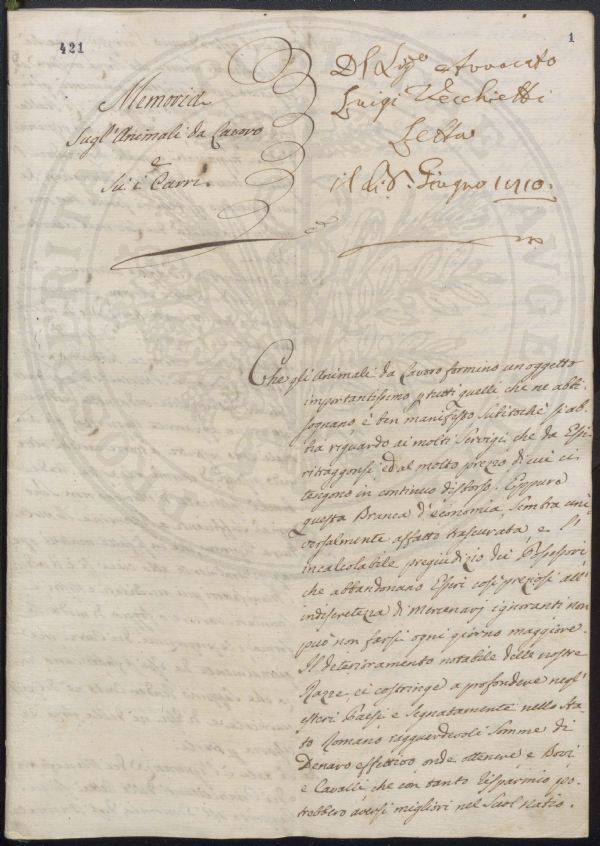 421
1
Memoria
Sugl'Animali da Lavoro
e
Su i Carri.
Del Sig.e Avvocato
Luigi Vecchietti
Letta
il dì 8. Giugno 1710.
Che gli Animali da Lavoro formino un oggetto
importantissimo p tutti quelli che ne abbi-
sognano è ben manifesto subitochè si ab-
bia riguardo ai molti Servigi, che da Essi
ritraggonsi ed al molto prezzo di cui ci
tengono in continuo disborso. Eppure
questa Branca d'economia sembra uni-
versalmente affatto trascurata e l'
incalcolabile pregiudizio dei Possessori
che abbandonano Esseri così preziosi all'
indiscretezza di Mercenarj ignoranti non
può non farsi ogni giorno maggiore.
Il deterioramento notabile delle nostre
Razze ci costringe a profondere negl'
esteri Paesi e segnatamente nello Sta-
to Romano ragguardevoli Somme di
Denaro effettivo onde ottenere e Bovi
e Cavalli che con tanto risparmio po-
trebbero aversi migliori nel Suol natio.